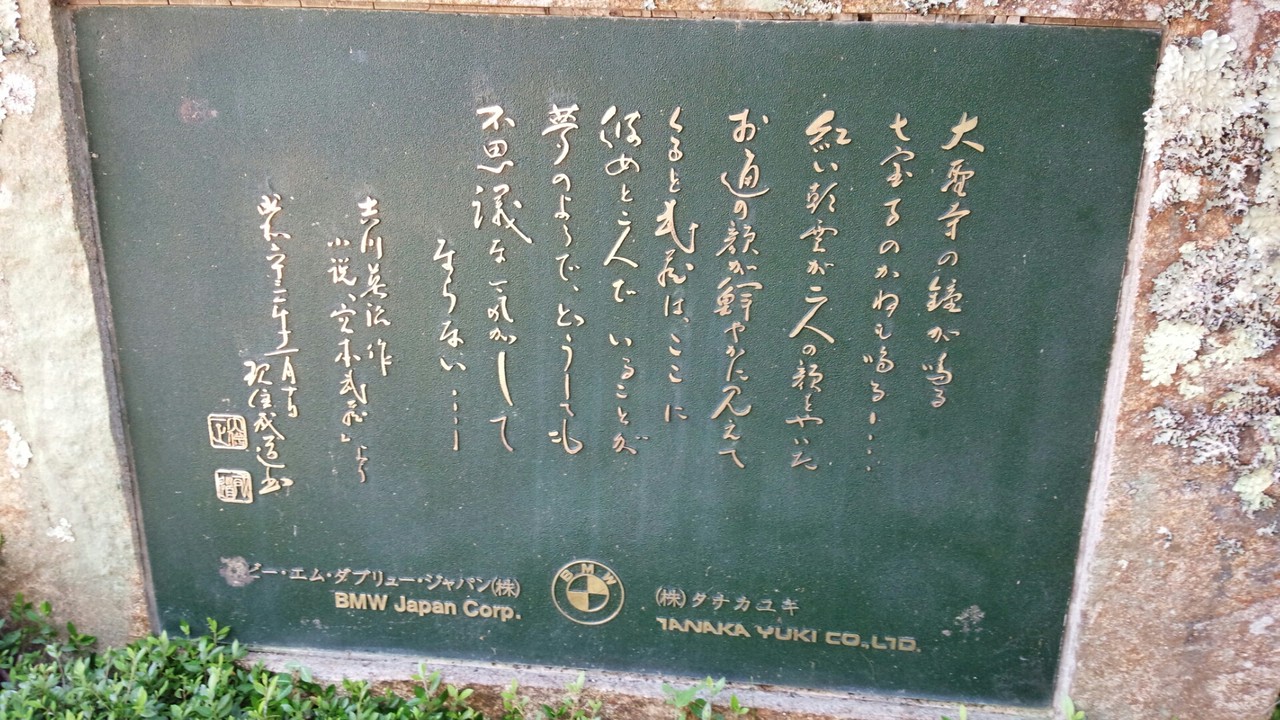 大聖寺の鐘が鳴る
七宝寺のかねも鳴る……
紅い 雲が二人の顔をやいた
お通の顔が鮮やかに見えて
くると武蔵は、ここに
二人でいることが
夢のようで、どうしても
不思議な気がして
ならない……
吉川英治作
小説、宮本武蔵より
現住成道書
ビー・エム・ダブリュー・ジャパン(株)
BMW Japan Corp.
BMW
(株)タナカユキ
TANAKA YUKI CO.,LTD.